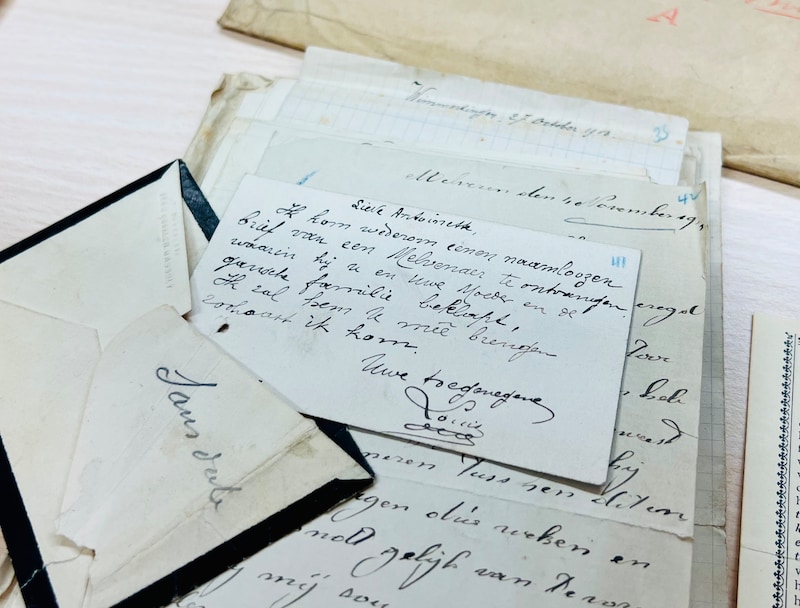 A
27 October 19
35
Melveren den 4 November 19
42
Lieve Antoinette,
Ik kom wederom eenen naamloozen
brief van een Melvenaer te ontvangen,
waarin hij u en Uwe Moeder en de
gansche familie beklapt,
Ik zal hem U mêe brengen
zohaast ik kom.
Uwe toegenegene
Louis
111
Sans date
Voor
heb
hij
meren tusschen dit en
gen drie weken en
nodt gelijk van
mij sou